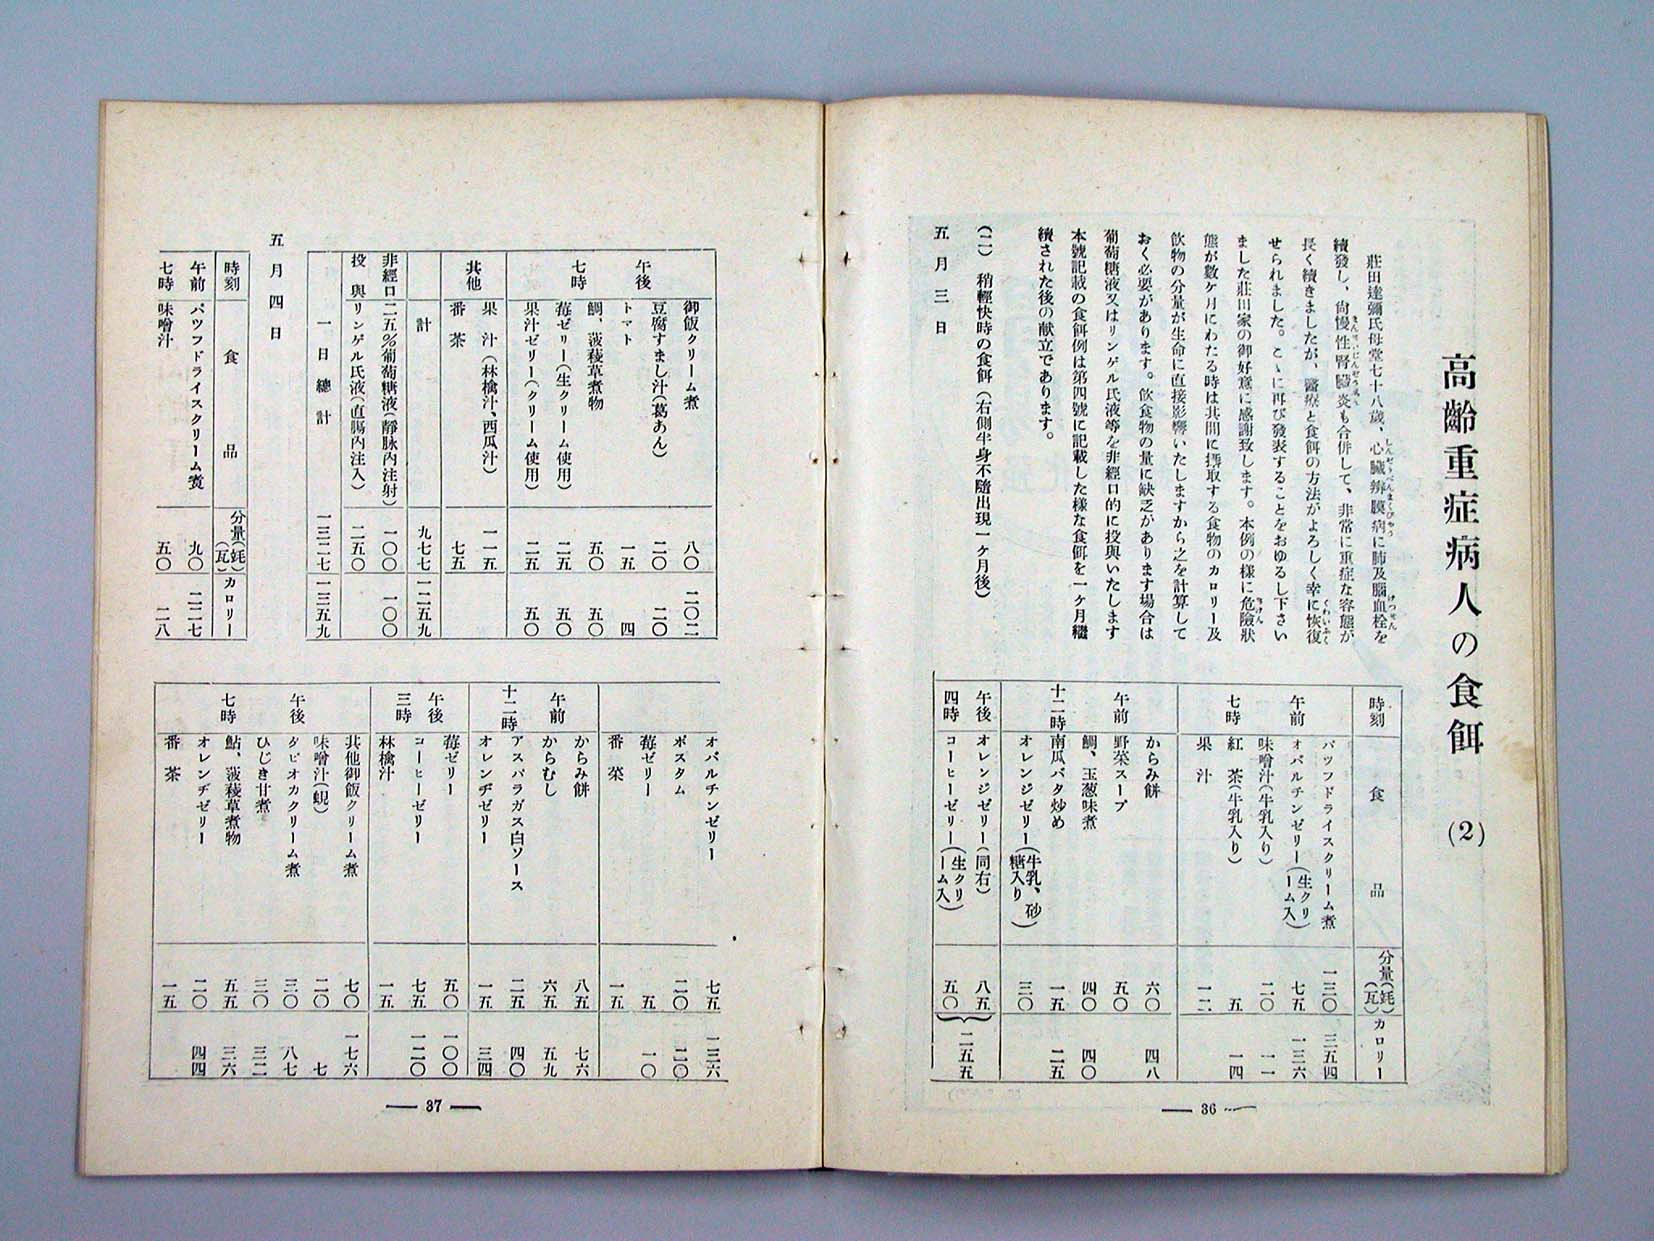 高齡重症病人の食餌 (2)
莊田達彌氏母堂七十八歲、心臟辨膜病に肺及腦血栓を
續發し、尙慢性腎臟炎も合併して、非常に重症な容態が
長く續きましたが、醫療と食餌の方法がよろしく幸に恢復
せられました。こゝに再び發表することをおゆるし下さい
ました莊田家の御好意に感謝致します。本例の樣に危險狀
態が數ケ月にわたる時は其間に攝取する食物のカロリー及
飮物の分量が生命に直接影響いたしますから之を計算して
おく必要があります。飮食物の量に缺乏があります場合は
葡萄糖液又はリンゲル氏液等を非經口的に投與いたします
本號記載の食餌例は第四號に記載した樣な食餌を一ケ月繼
續された後の献立であります。
(二) 稍輕快時の食餌(右側半身不隨出現一ケ月後)
五月三日
時刻 食品 分量(瓱)(瓦) カロリー
午前七時
パツフドライスクリーム煮 一三〇 三五四
オバルチンゼリー(生クリーム入) 七五 一三六
味噌汁(牛乳入り) 二〇 一一
紅茶(牛乳入り) 五 一四
果汁 一二
午前十二時
からみ餅 六〇 四八
野菜スープ 五〇
鯛、玉葱味煮 四〇 四〇
南瓜バタ炒め 一五 二五
オレンジゼリー(牛乳、砂糖入り) 三〇
午後四時
オレンジゼリー(同右) 八五
コーヒーゼリー(生クリーム入) 五〇
二五五
— 36 —
午後七時
御飯クリーム煮 八〇 二〇二
豆腐すまし汁(葛あん) 二〇 二〇
トマト 一五 四
鯛、菠薐草煮物 五〇 五〇
莓ゼリー(生クリーム使用) 二五 五〇
果汁ゼリー(クリーム使用) 二五 五〇
其他
果汁(林檎汁、西瓜汁) 一一五
番茶 七五
計 九七七 一二五九
非經口投與
二五%葡萄糖液(靜脉內注射) 一〇〇 一〇〇
リンゲル氏液(直腸內注入) 二五〇
一日總計 一三二七 一三五九
五月四日
時刻 食品 分量(瓱)(瓦) カロリー
午前七時
パツフドライスクリーム煮 九〇 二二七
味噌汁 五〇 二八
オバルチンゼリー 七五 一三六
ポスタム 二〇 二〇
莓ゼリー 五 一〇
番茶 一五
午前十二時
からみ餅 八五 七六
からむし 六五 五九
アスパラガス白ソース 二五 四〇
オレンヂゼリー 一五 三四
午後三時
莓ゼリー 五〇 一〇〇
コーヒーゼリー 七五 一二〇
林檎汁 一五
午後七時
其他御飯クリーム煮 七〇 一七六
味噌汁(蜆) 二〇 七
タピオカクリーム煮 三〇 八七
ひじき甘煮 三〇 三二
鮎、菠薐草煮物 五五 三六
オレンヂゼリー 二〇 四四
番茶 一五
— 37 —